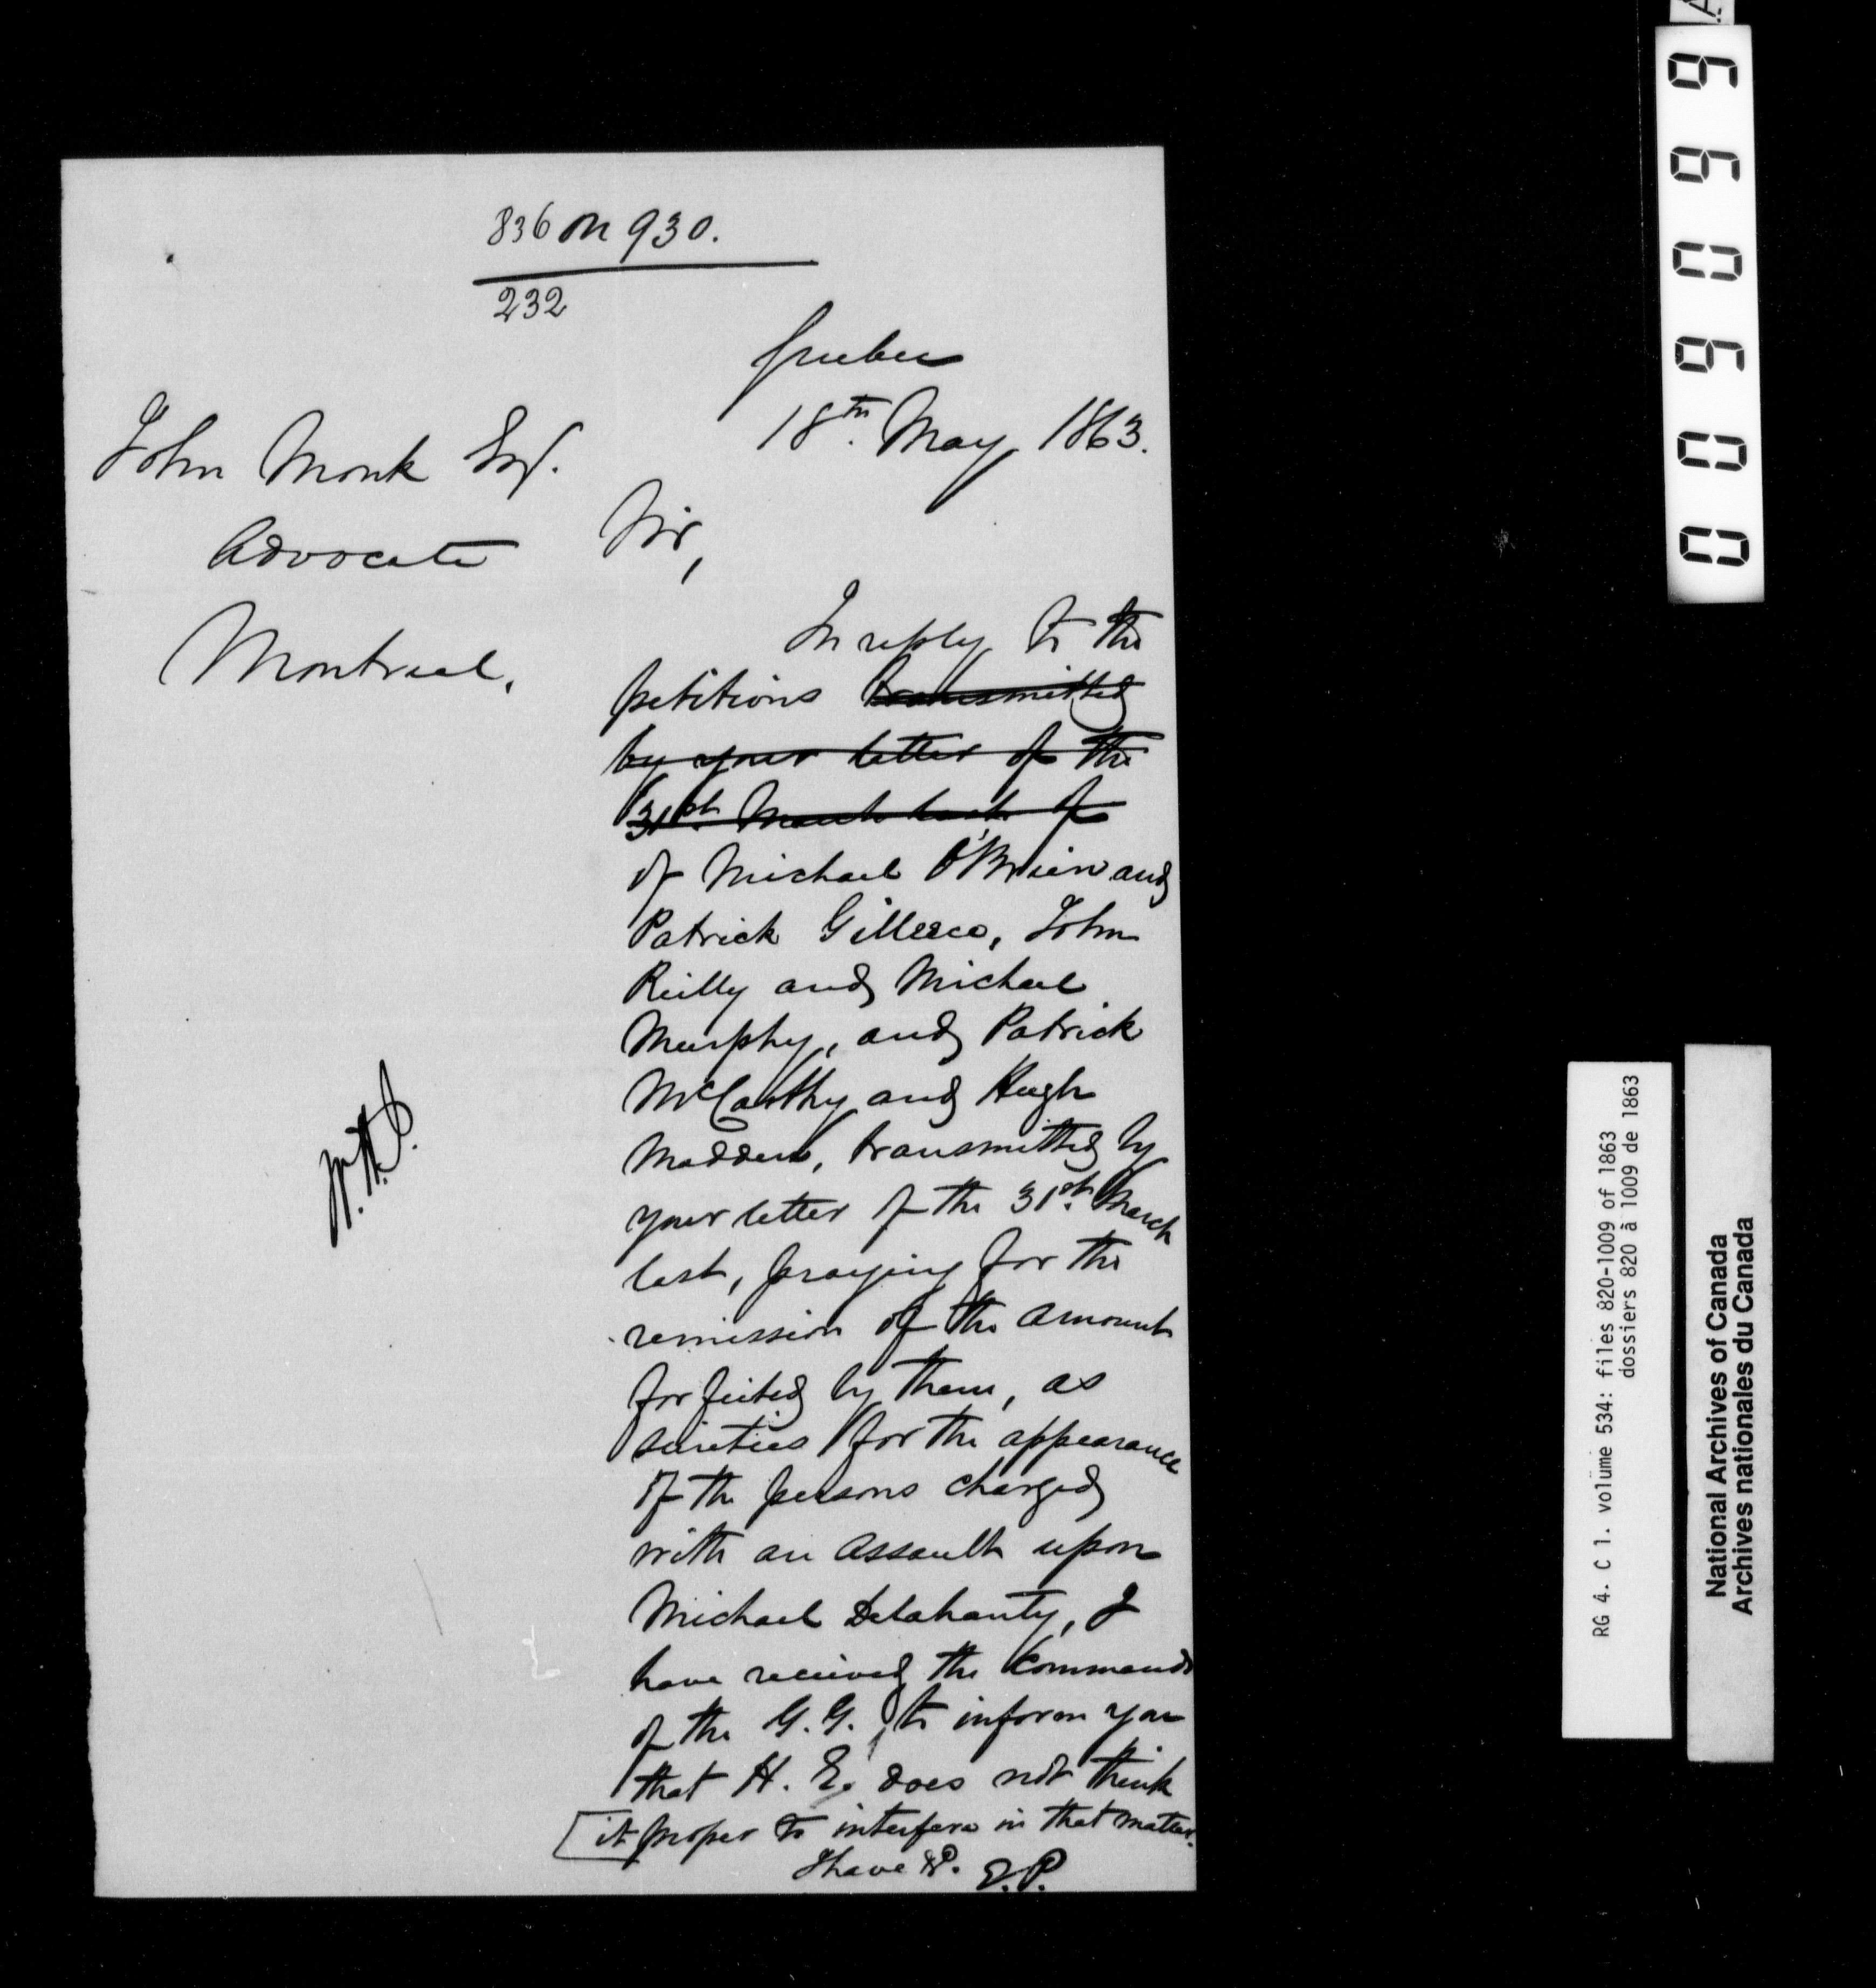 836 on 930.
232
Quebec
18th. May 1863.
John Monk Esq.
Advocate
Montreal.
Sir,
In reply to the
petitions transmitted
by your letter of the
31st. March last, of
of Michael O'Brien and
Patrick Gillesco, John
Reilly and Michael
Murphy, and Patrick
McCarthy and Hugh
Madden, transmitted by
your letter of the 31st. March
last, praying for the
remission of the amount
forfeited by them, as
sureties for the appearance
of the persons charged
with an assault upon
Michael Delahanty, I
have received the Commands
of the G.G. to inform you
that H. E. does not think
it proper to interfere in that matter.
I have &c. E.P.
W.H.C.
0 0 6 0 6 6
RG 4. C 1. volume 534: files 820-1009 of 1863
dossiers 820 à 1009 de 1863
National Archives of Canada
Archives nationales du Canada